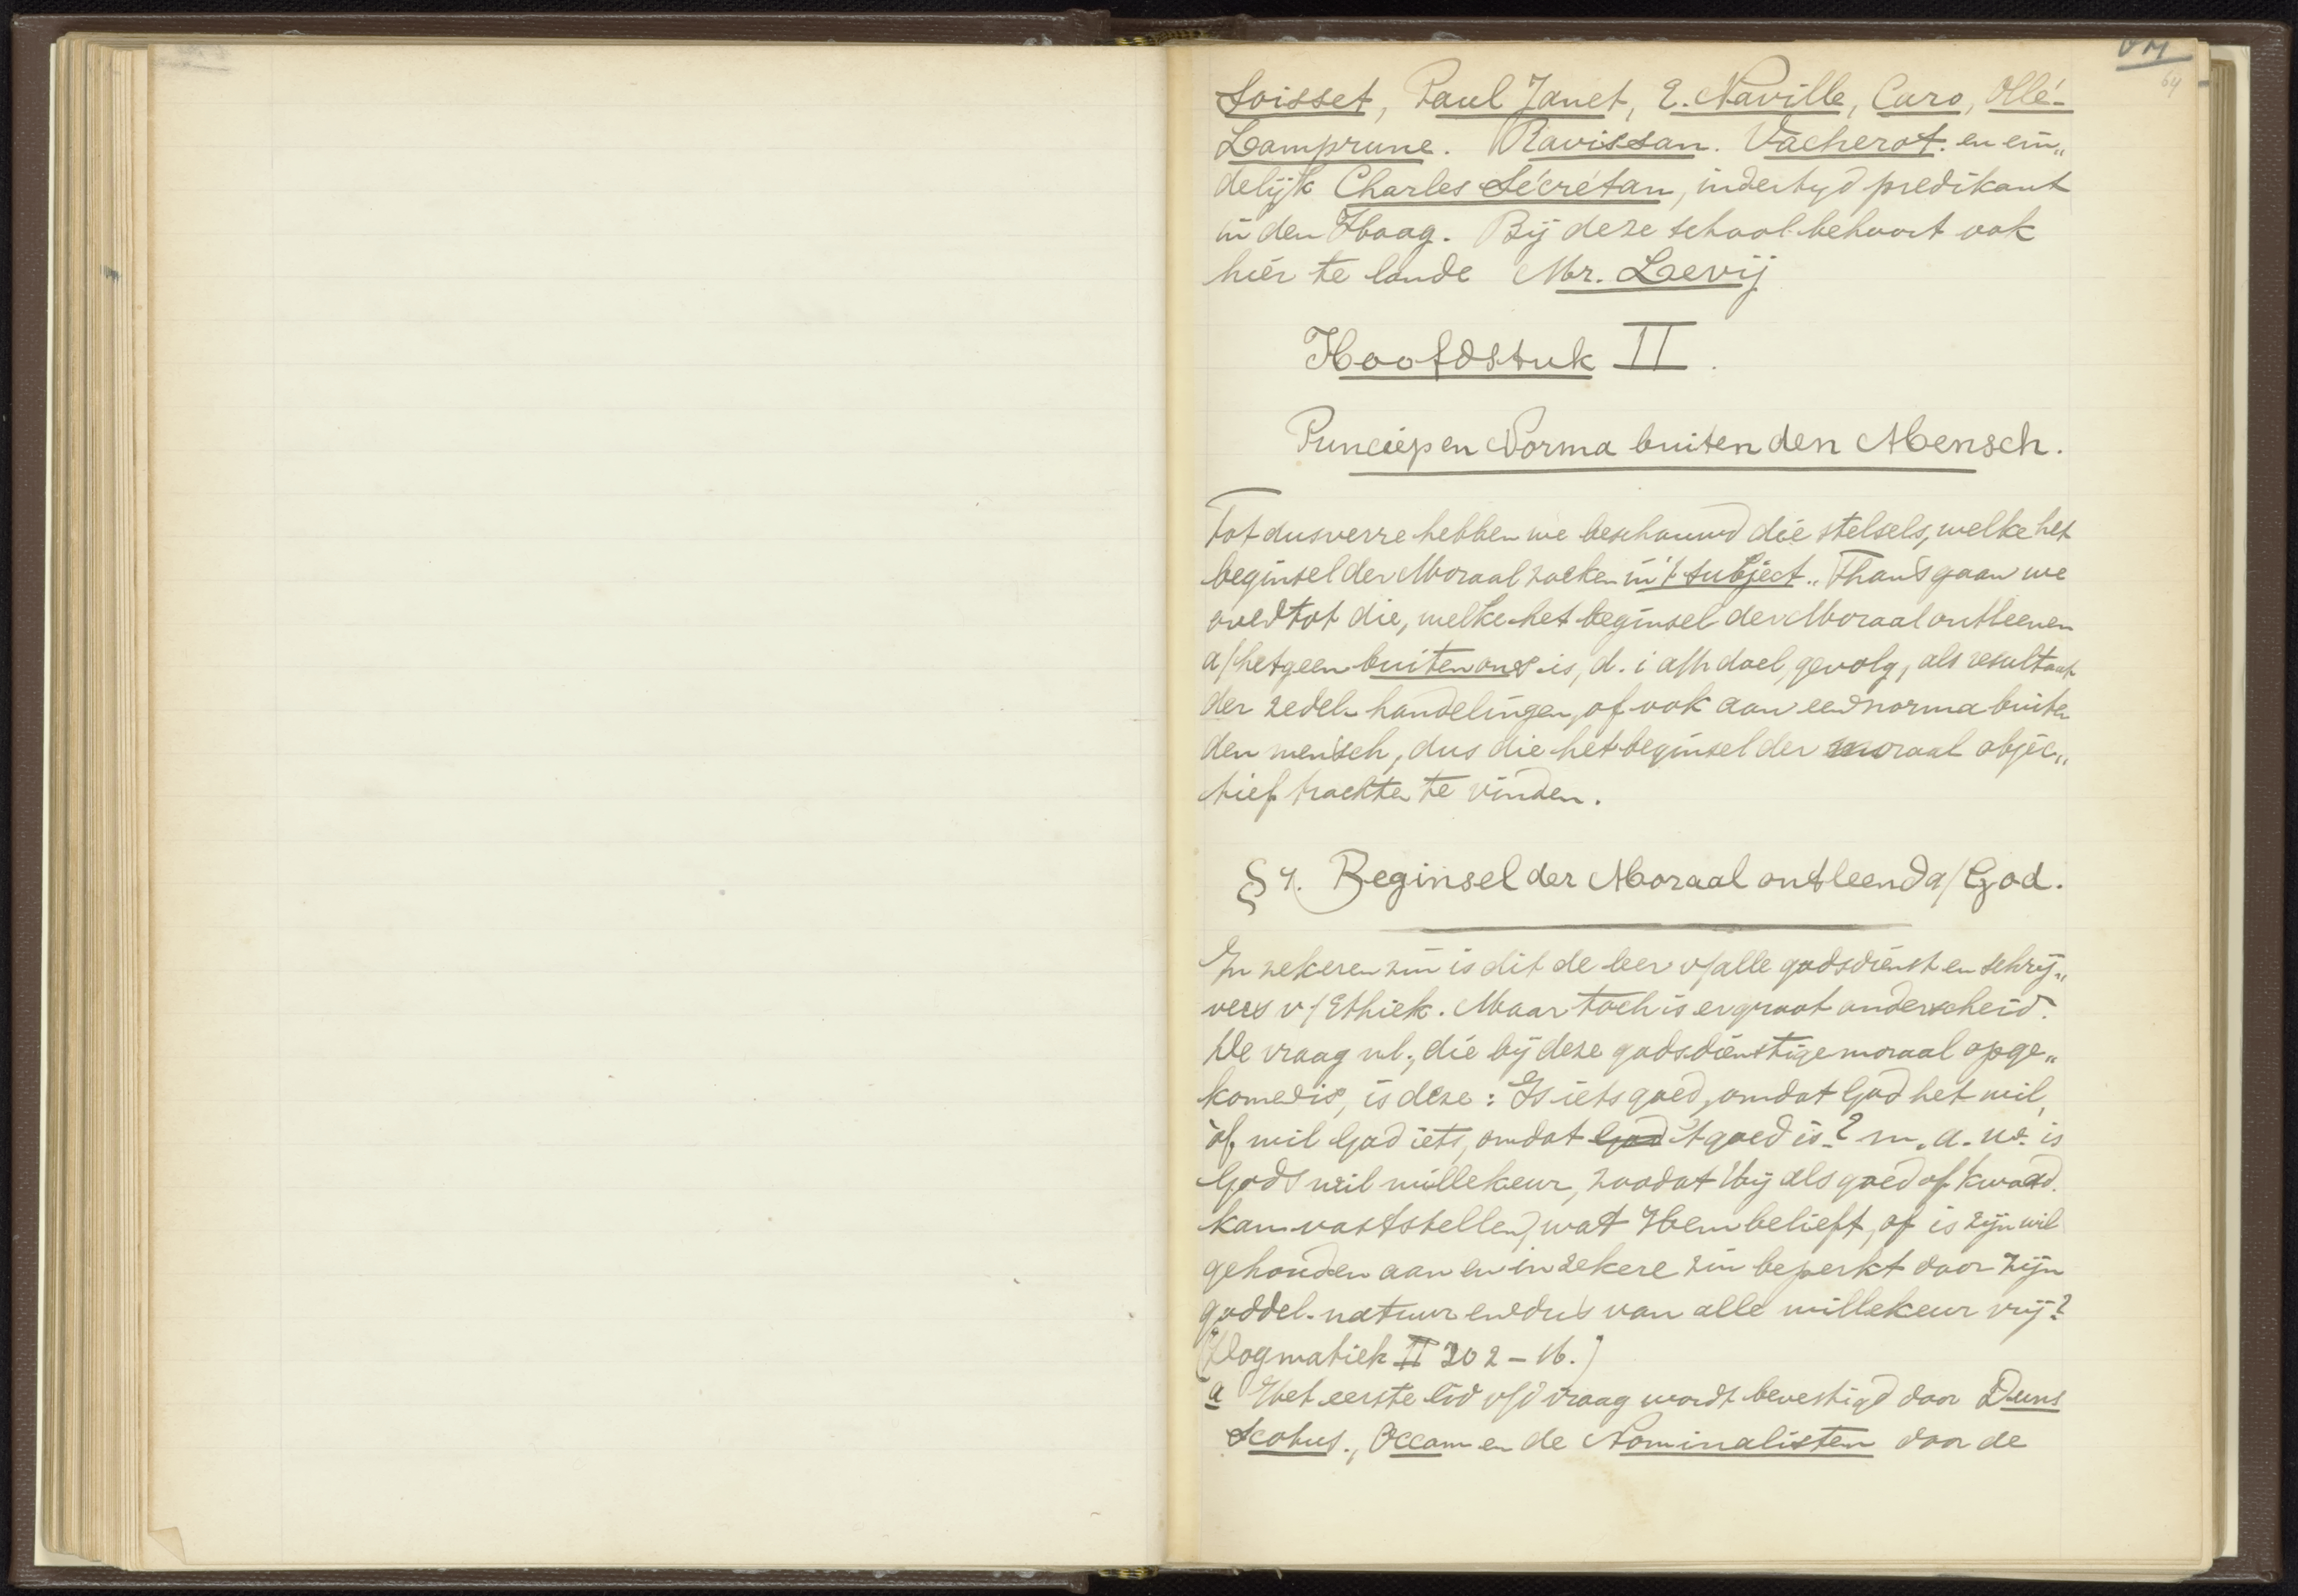 64
Soisset, Paul Janet, E. Naville, Caro, Ollé-
Lamprune. Ravissan. Vacherot. en ein„
delijk Charles Sécrétan, indertyd predikant
in den Haag. Bij deze school behoort ook
hier te lande Mr. Levij
Hoofdstuk II.
Princiep en Norma buiten den Mensch.
Tot dusverre hebben we beschouwd die stelsels, welke het
beginsel der Moraal zoeken in 't subject. Thans gaan we
over tot die, welke het beginsel der Moraal ontleenen
a/hetgeen buiten ons is, d. i a/h doel, gevolg, als resultaat
der zedel. handelingen, of ook aan een norma buiten
den mensch, dus die het beginsel der moraal objec„
tief trachten te vinden.
§ 7. Beginsel der Moraal ontleend a/God.
In zekeren zin is dit de leer v/alle godsdienst en schrij„
vers v/Ethiek. Maar toch is er groot onderscheid.
De vraag nl., die bij deze godsdienstige moraal opge„
komen is, is deze: Is iets goed, omdat God het wil,
òf wil God iets, omdat God 't goed is? m. a. w. is
Gods wil willekeur, zoodat Hij als goed of kwaad
kan vaststellen, wat Hem belieft, of is zijn wil
gehouden aan en in zekere zin beperkt door zijn
goddel. natuur en dus van alle willekeur vrij?
(Dogmatiek II 202-16.)
a Het eerste lid v/d vraag wordt bevestigd door Duns
Scotus., Occam en de Nominalisten door de